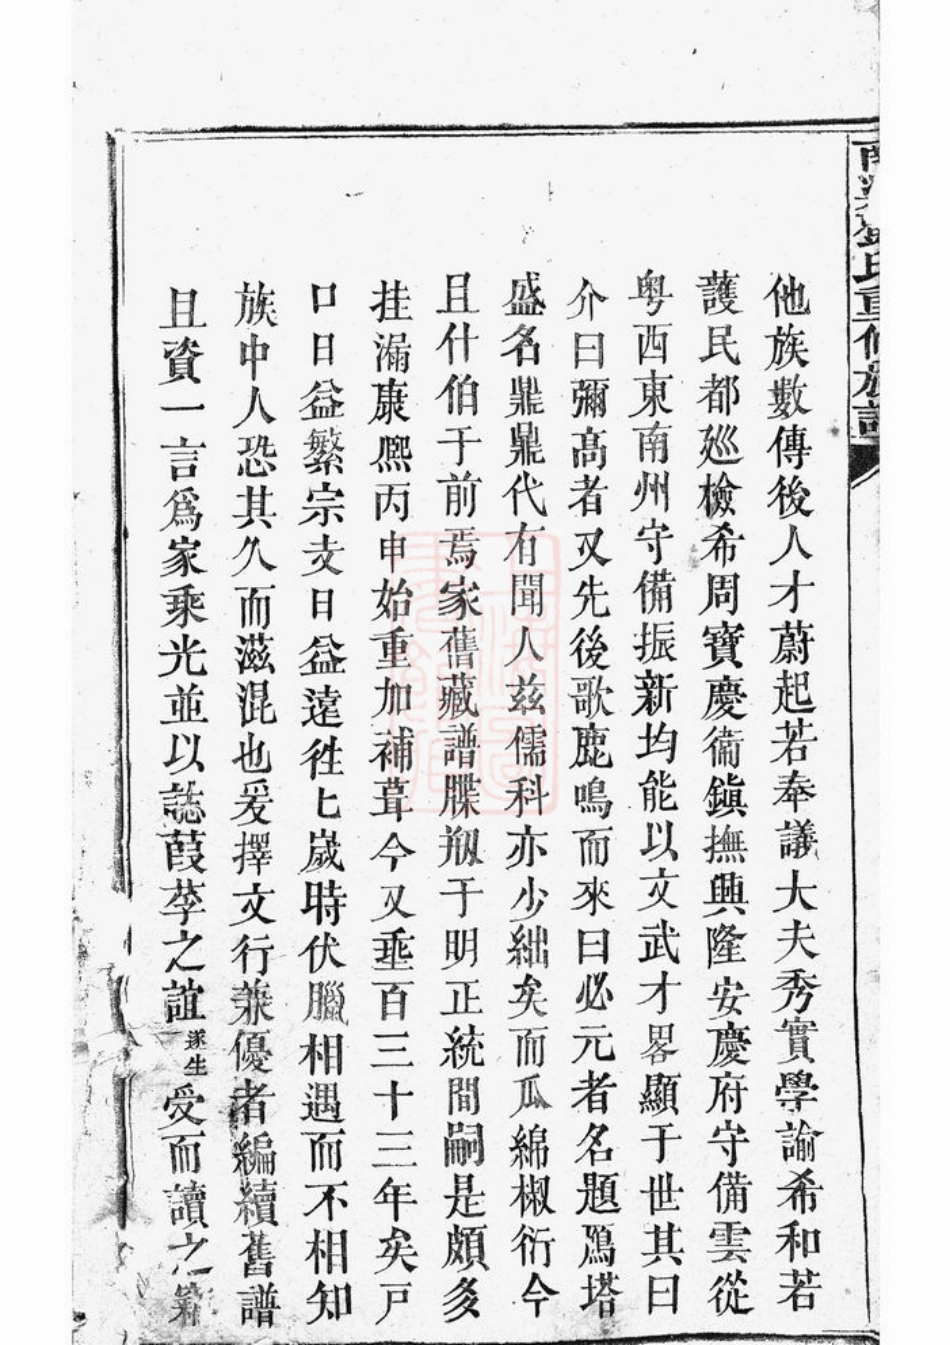 他族數傳後人才蔚起若奉議大夫秀實學諭希和若
護民都廵檢希周寶慶衞鎮撫興隆安慶府守備雲從
粤西東南州守備振新均能以文武才畧顯于世其曰
介曰彌高者又先後歌鹿鳴而來曰必元者名題鴈塔
盛名鼎鼎代有聞人兹儒科亦少絀矣而瓜綿椒衍今
且什伯于前焉家舊藏譜牒剏于明正統間嗣是頗多
挂漏康熙丙申始重加補葺今又垂百三十三年矣戸
口日益繁宗支日益遠徃七歲時伏臘相遇而不相知
族中人恐其久而滋混也爰擇文行兼優者編續舊譜
且資一言爲家乘光並以誌葭莩之誼遂生受而讀之
氏重修族譜